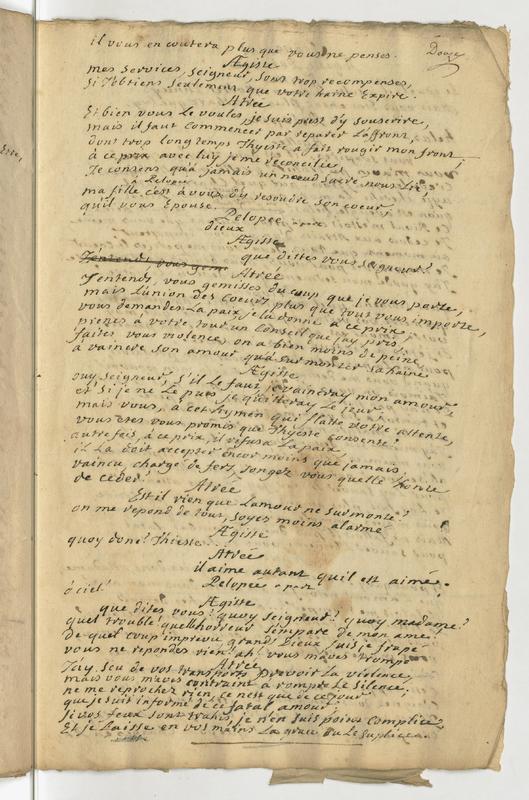 Douze
il vous en coutera plus que vous ne penses.
Ægiste
mes services, seigneur, sont trop recompenses,
si j'obtiens seulement que votre haine expire.
Atrée
Et bien vous le voules, je suis prest d'y souscrire,
mais il faut commencer par reparer l'affront,
dont trop longtemps Thyeste a fait rougir mon front,
à ce prix avec luy je me reconcilie,
Je consens qu'à jamais un nœud sacré nous lie,
a Pelopée
ma fille c'est à vous d'y resoudre son coeur,
qu'il vous Epouse
Pelopée a part
dieux
Ægiste
que dittes vous seigneur?
J'entends vous gemi
Atrée
J'entends, vous gemisses du coup que je vous porte,
mais l'union des coeurs plus que tout vous importe,
vous demandes la paix, je la donne à ce prix,
prenes à votre tour un conseil que j'ay pris,
faites vous violence, on a bien moins de peine
a vaincre son amour qu'à surmonter sa haine.
Ægiste
ouy, seigneur, s'il le faut je vaincray mon amour,
et si je ne le puis je quitteray le jour
mais vous, à cet hymen qui flatte votre attente,
vous etes vous promis que Thyeste consente?
autrefois, à ce prix, il refusa la paix,
il la doit accepter encor moins que jamais,
vaincu, chargé de fers, songez vous quelle honte
de ceder!
Atrée
Est il rien que l'amour ne surmonte?
on me repond de tout, soyez moins alarmé
Ægiste
quoy donc? Thieste
Atrée
il aime autant qu'il est aimé.
Pelopée a part
ô ciel!
Ægiste
que dites vous? quoy seigneur? quoy madame?
quel trouble quelle horreur s'empare de mon ame!
de quel coup imprevu grand Dieux suis je frapé
vous ne repondes rien! ah! vous m'aves trompé
Atrée
J'ay sçu de vos transports prevoir la violence,
mais vous m'aves contraint à rompre le silence,
ne me reprochez rien, ce n'est que de ce jour
que je suis informé de ce fatal amour,
si vos feux sont trahis, je n'en suis point complice,
Et je laisse en vos mains la grace ou le suplice